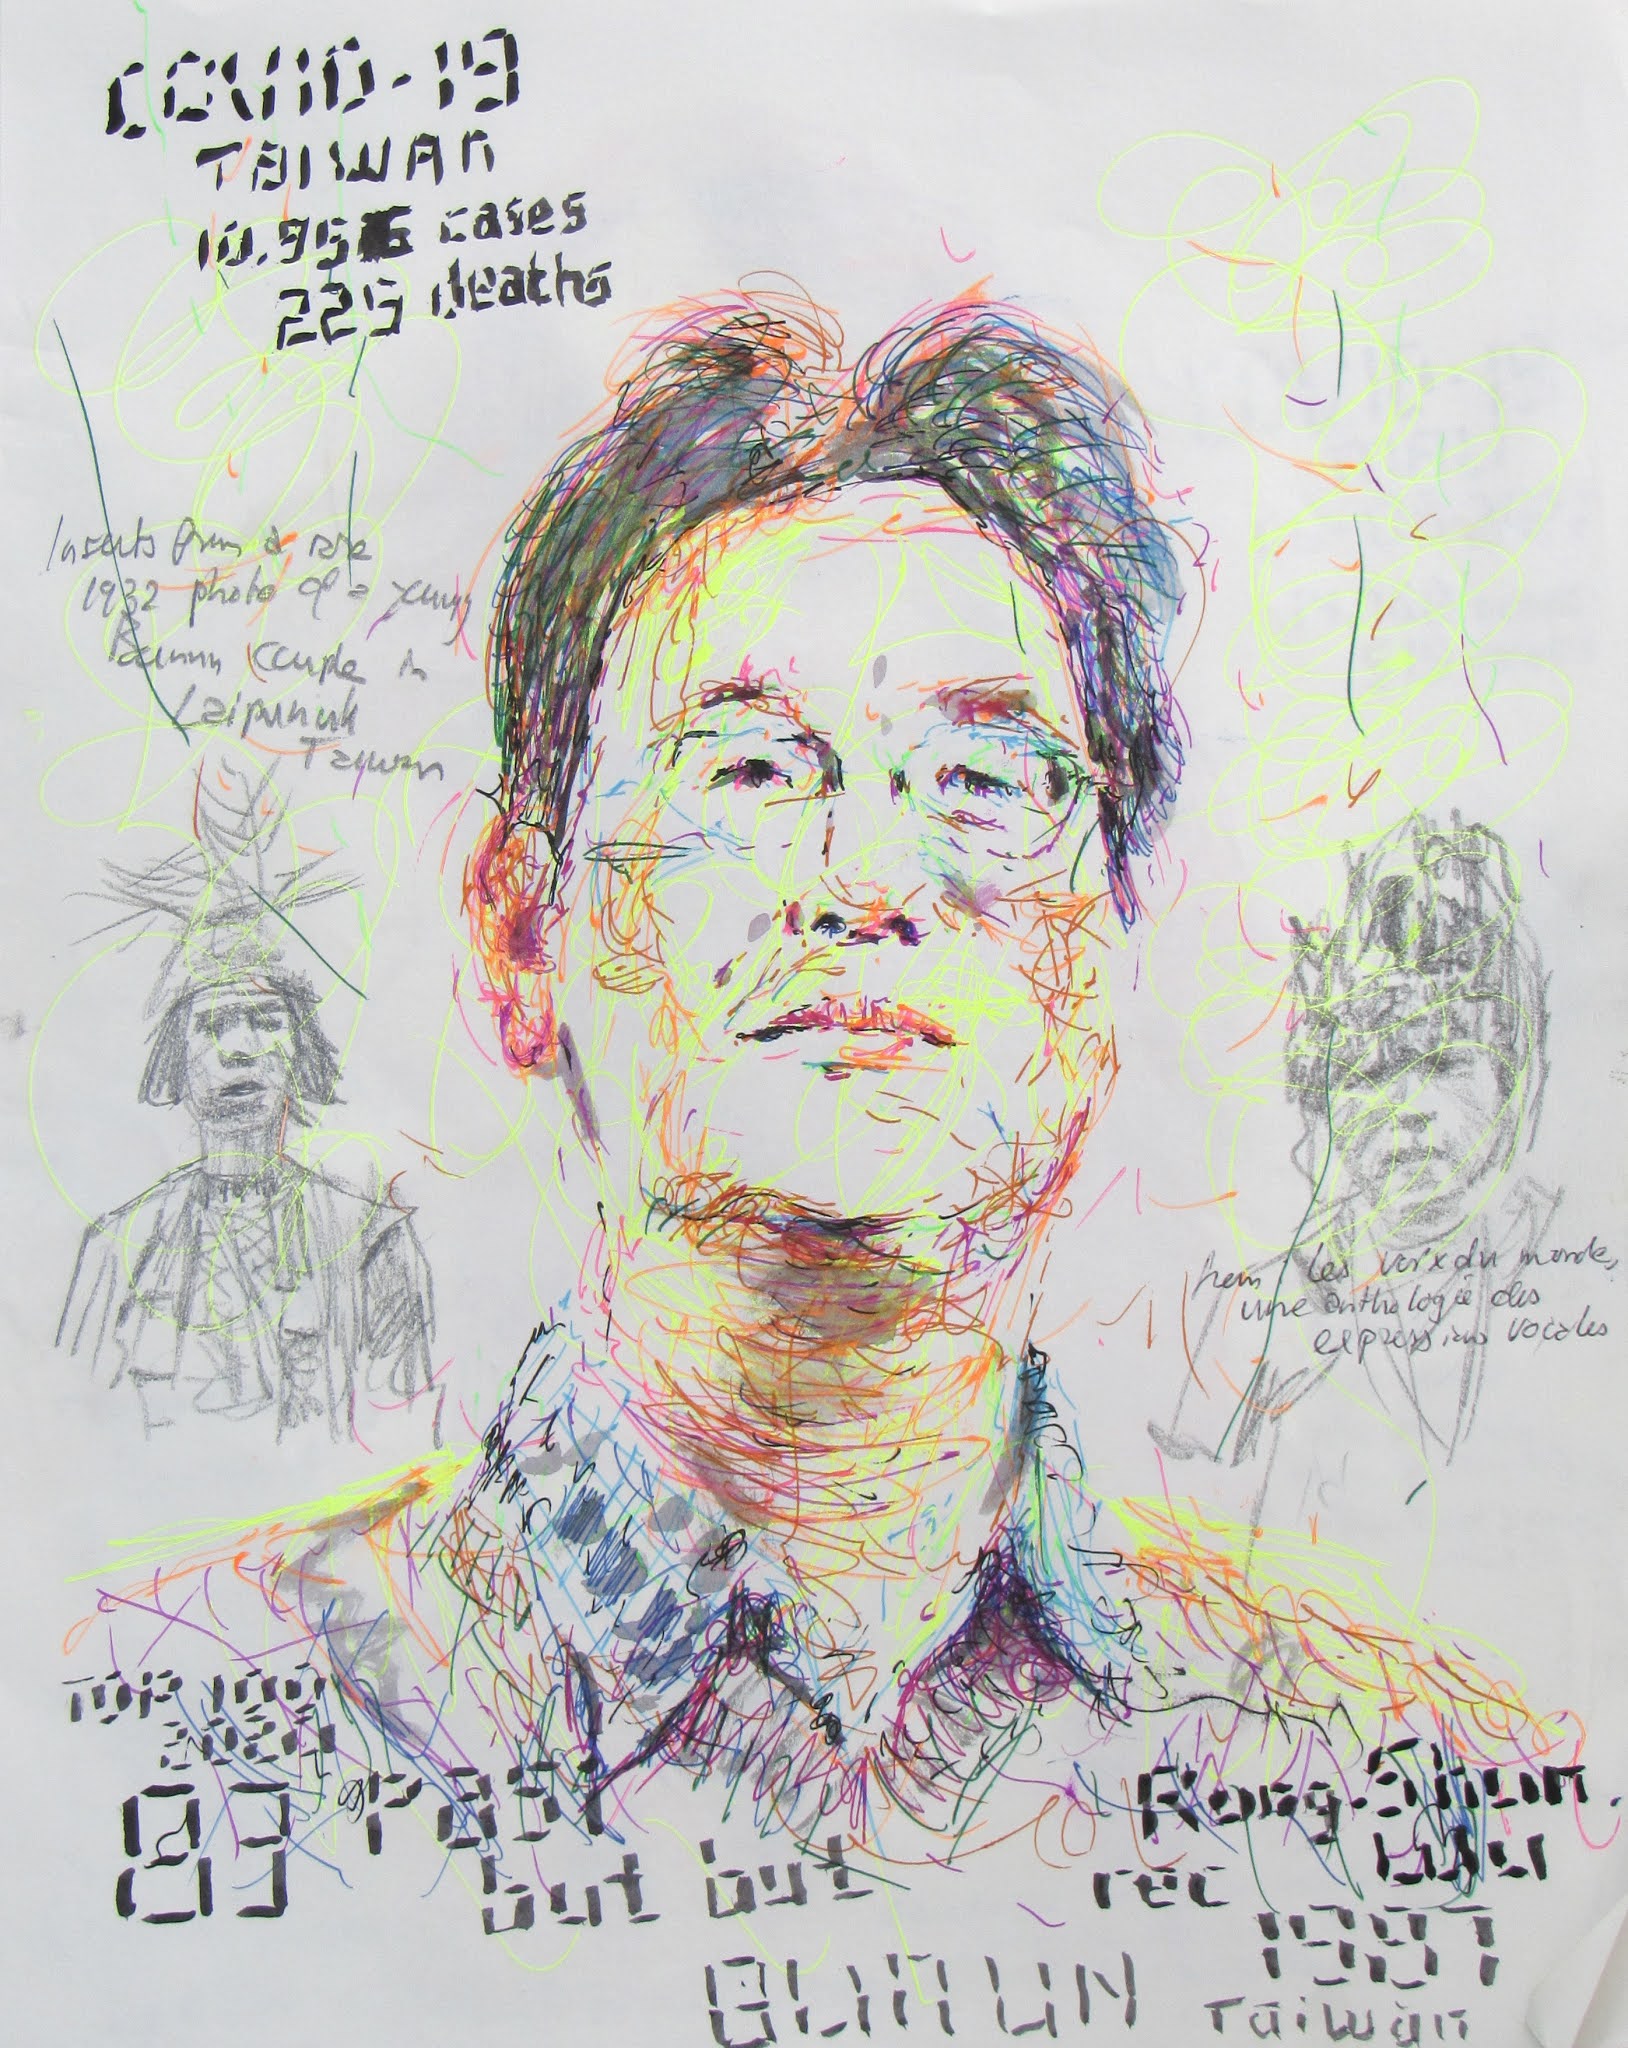 COVID-19
TAIWAN
10.956 cases
225 deaths
Inserts from a rare
1932 photo of a young
Bunun couple in
Laipunuk
Taiwan
from: Les voix du monde,
une anthologie des
expressions vocales
TOP 100
2021
83 Pasi
but but
Rong-Shun.
WU
rec
1987
BUNUN
Taiwan